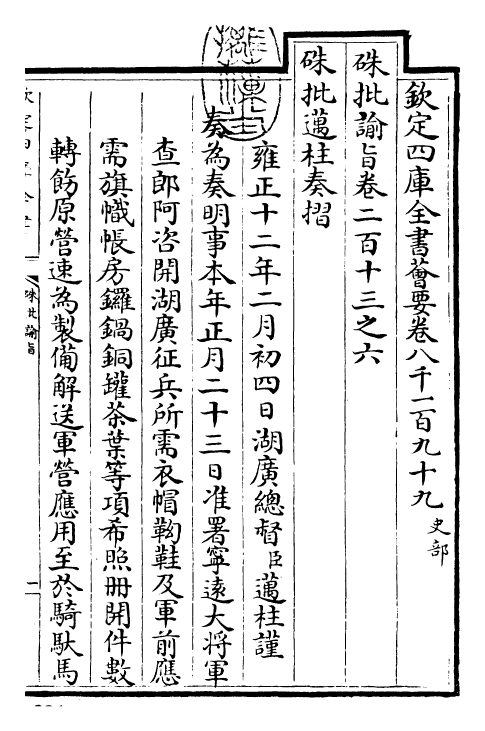 欽定四庫全書薈要卷八千一百九十九 史部
硃批諭旨卷二百十三之六
硃批邁柱奏摺
雍正十二年二月初四日湖廣總督臣邁柱謹
奏為奏明事本年正月二十三日准署寧遠大將軍
查郎阿咨開湖廣征兵所需衣帽鞾鞋及軍前應
需旗幟帳房鑼鍋銅罐茶葉等項希照冊開件數
轉飭原營速為製備解送軍營應用至於騎馱馬
硃批諭旨
一